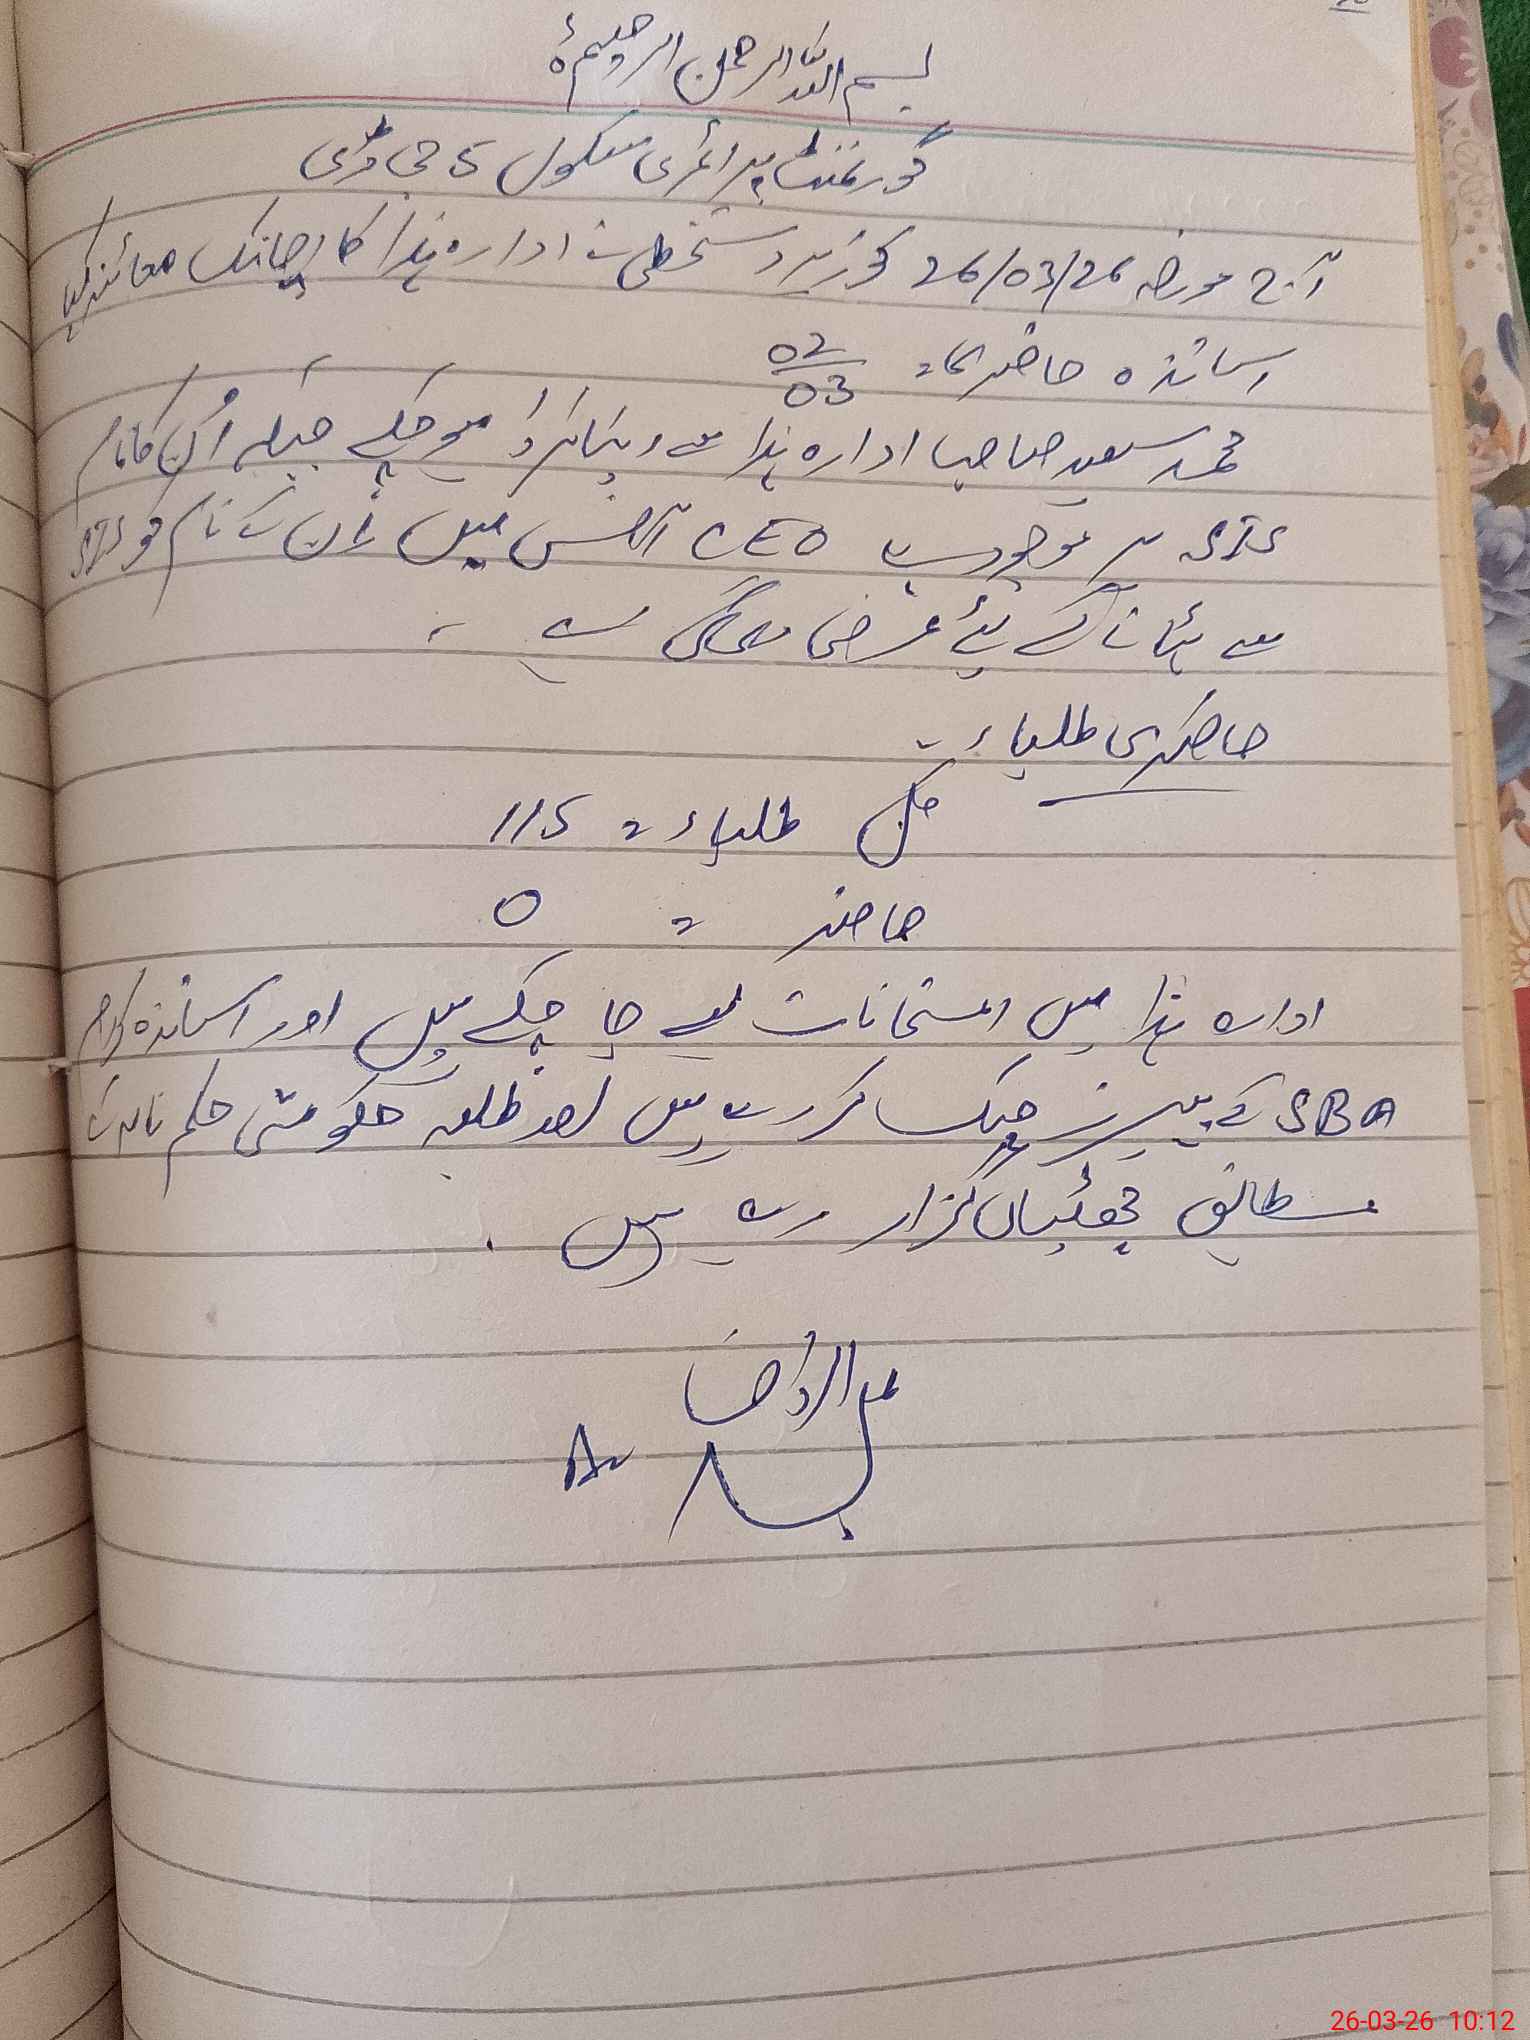 بسم اللہ الرحمن الرحیم
گورنمنٹ پرائمری سکول 5 جی ڈی
آج مورخہ 26/03/26 کو زیر دستخطی نے ادارہ ہذا کا اچانک معائنہ کیا
اساتذہ حاضری = 02/03
محمد سعید صاحب ادارہ ہذا سے ریٹائرڈ ہو چکے جبکہ اُن کا نام
SIS پر موجود ہے CEO آفس میں اِن کے نام کو SIS
سے ہٹانے کے لئے عرضی دی گئی ہے ۔
حاضری طلباء :-
کل طلباء = 115
حاضر = 0
ادارہ ہذا میں امتحانات لیے جا چکے ہیں اور اساتذہ کرام
SBA کے پیپرز چیک کر رہے ہیں اور طلبہ حکومتی حکم نامہ کے
مطابق چھٹیاں گزار رہے ہیں ۔
26-03-26 10:12